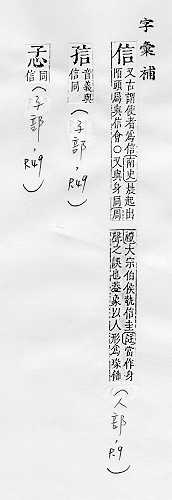 字彙補
信 又古謂使者爲信南史晨起出陌頭屬與信會○又與身同周禮大宗伯侯執信圭註當作身聲之誤也葢象以人形爲瑑飾(人部,P.9)
㝇 音義與信同(子部,P.49)
㐰 同信(子部,P.49)